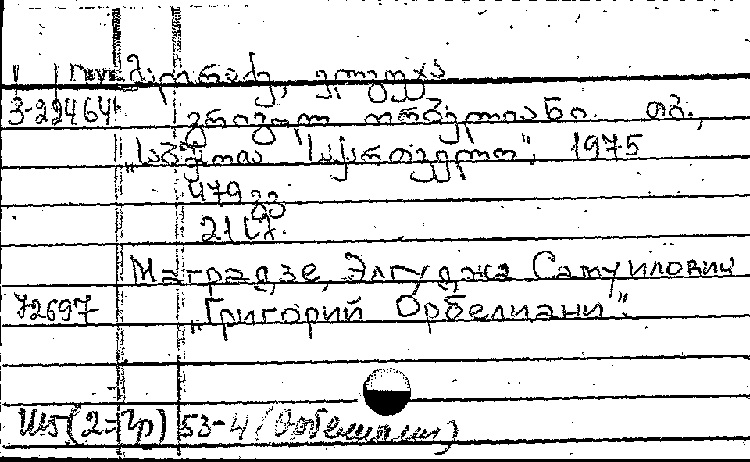 მაღრაძე, ელგუჯა
3-22464 გრიგოლ ორბელიანი. თბ.,
„საბჭოთა საქართველო“, 1975
479 გვ.
Маградзе, Элгуджа Самуилович
72697 „Григорий Орбелиани“.
Ш5(2=Гр) 53-4 (Орбелиани)